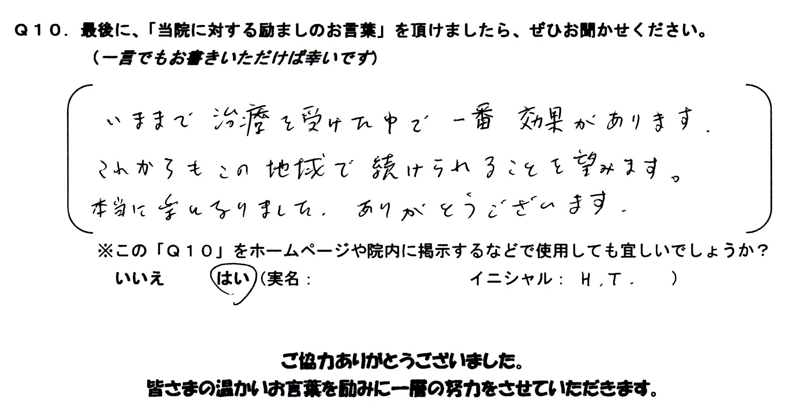 Q10．最後に、「当院に対する励ましのお言葉」を頂けましたら、ぜひお聞かせください。
（一言でもお書きいただけば幸いです）
いままで 治療を受けた中で 一番 効果があります．
これからもこの 地域で 続けられることを望みます。
本当に 楽になりました．ありがとうございます．
※この「Q10」をホームページや院内に掲示するなどで使用しても宜しいでしょうか？
いいえ はい（実名： イニシャル： H．T． ）
ご協力ありがとうございました。
皆さまの温かいお言葉を励みに一層の努力をさせていただきます。